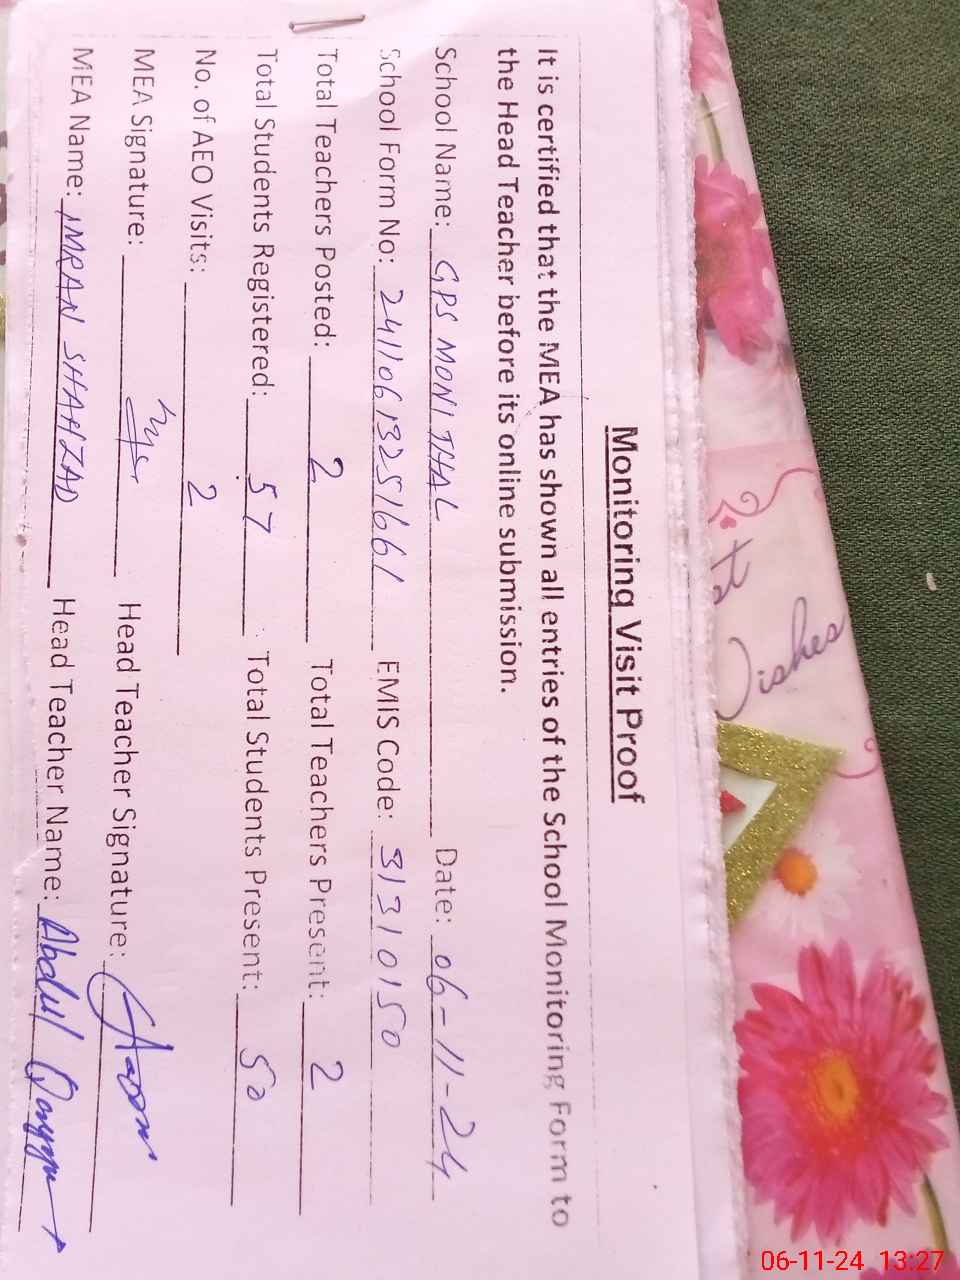 Monitoring Visit Proof
It is certified that the MEA has shown all entries of the School Monitoring Form to
the Head Teacher before its online submission.
School Name: GPS MONI THAL Date: 06-11-24
School Form No: 24110613251661 EMIS Code: 31310150
Total Teachers Posted: 2 Total Teachers Present: 2
Total Students Registered: 57 Total Students Present: 50
No. of AEO Visits: 2
MEA Signature: Head Teacher Signature:
MEA Name: IMRAN SHAHZAD Head Teacher Name: Abdul
st
Wishes
06-11-24 13:27